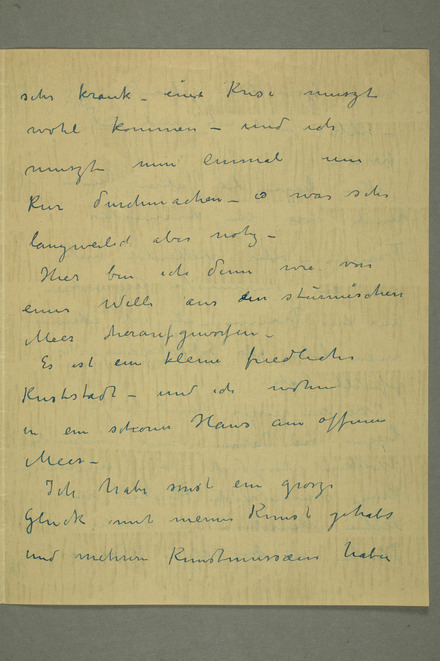 sehr krank – eine Krise muszt
wohl kommen – und ich
muszt nun einmal um
Kur durchmachen – es was sehr
langweilid aber notig –
Hier bin ich denn wie von
einer Welle aus den stürmischen
Meer heraufgeworfen –
Es ist ein kleine friedliche
Küststadt – und ich wohne
in ein schönes Haus am offenen
Meer –
Ich habe sonst ein grosze
Glück mit meine Kunst gehabt
und mehrere Kunstmuseen haben